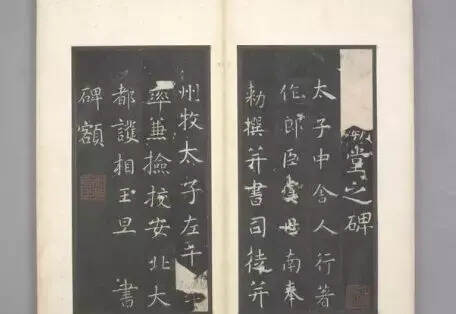 堂之碑
太子中舍人行著
作郎臣虞世南奉
勑撰并書司徒并
州牧太子左千
率兼撿挍安北大
都護相王旦 書
碑額